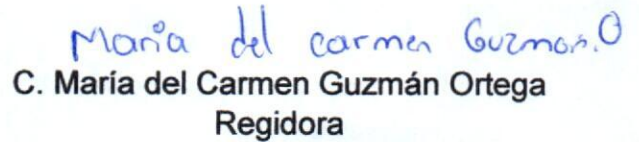 Maria del carmen Guzman.O
C. María del Carmen Guzmán Ortega
Regidora